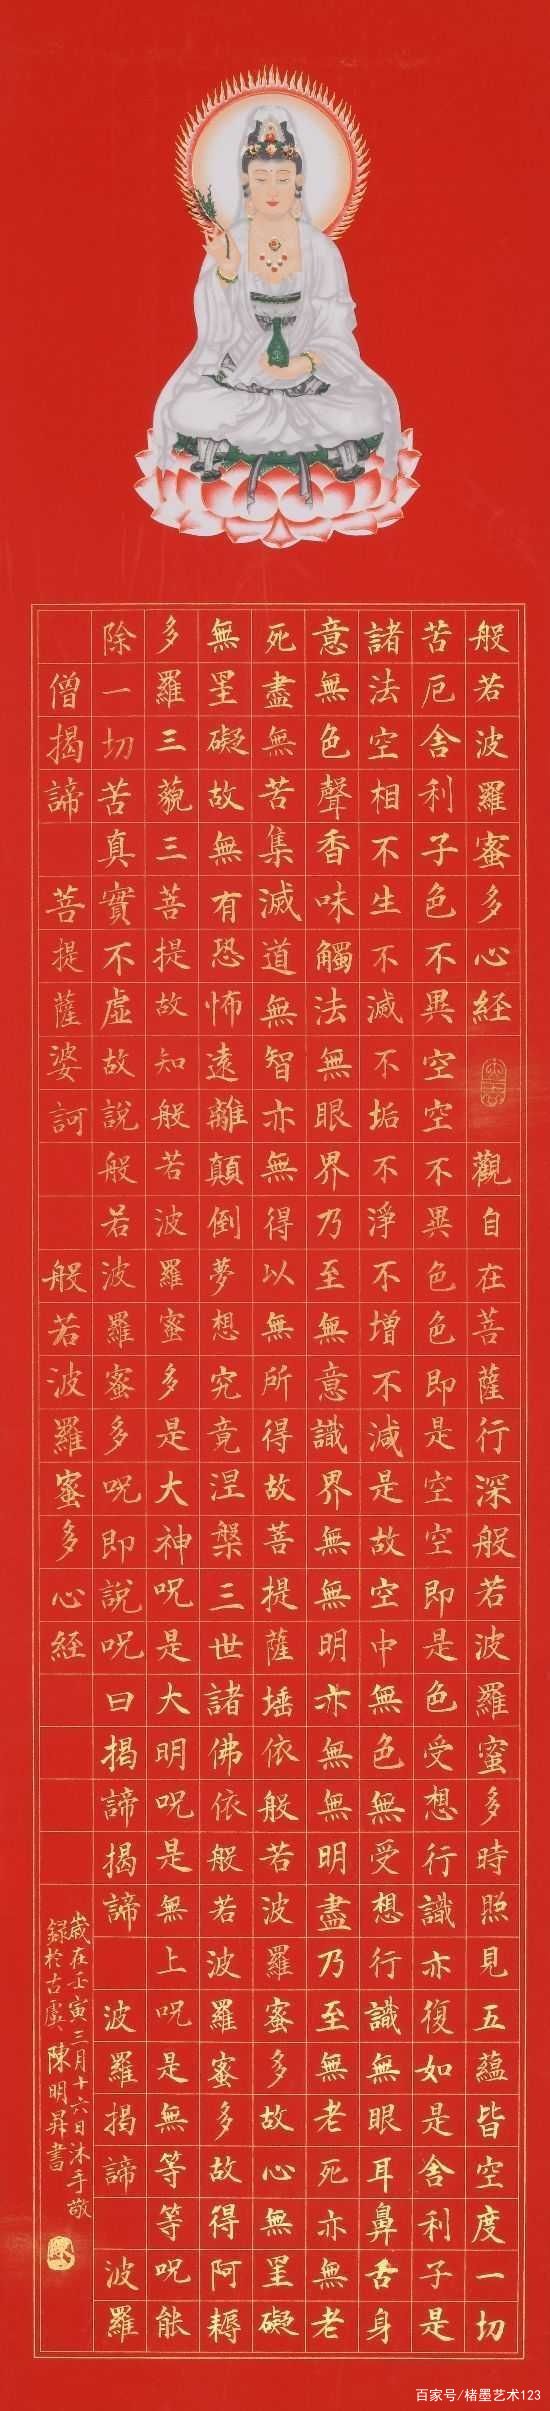 般若波羅蜜多心經 觀自在菩薩行深般若波羅蜜多時照見五蘊皆空度一切
苦厄舍利子色不異空空不異色色即是空空即是色受想行識亦復如是舍利子是
諸法空相不生不滅不垢不淨不增不減是故空中無色無受想行識無眼耳鼻舌身
意無色聲香味觸法無眼界乃至無意識界無無明亦無無明盡乃至無老死亦無老
死盡無苦集滅道無智亦無得以無所得故菩提薩埵依般若波羅蜜多故心無罣礙
無罣礙故無有恐怖遠離顛倒夢想究竟涅槃三世諸佛依般若波羅蜜多故得阿耨
多羅三藐三菩提故知般若波羅蜜多是大神呪是大明呪是無上呪是無等等呪能
除一切苦真實不虛故說般若波羅蜜多呪即說呪曰揭諦揭諦 波羅揭諦 波羅
僧揭諦 菩提薩婆訶 般若波羅蜜多心経
歲在壬寅三月十六日沐手敬
録於古虞陳明昇書
百家号/楮墨艺术123